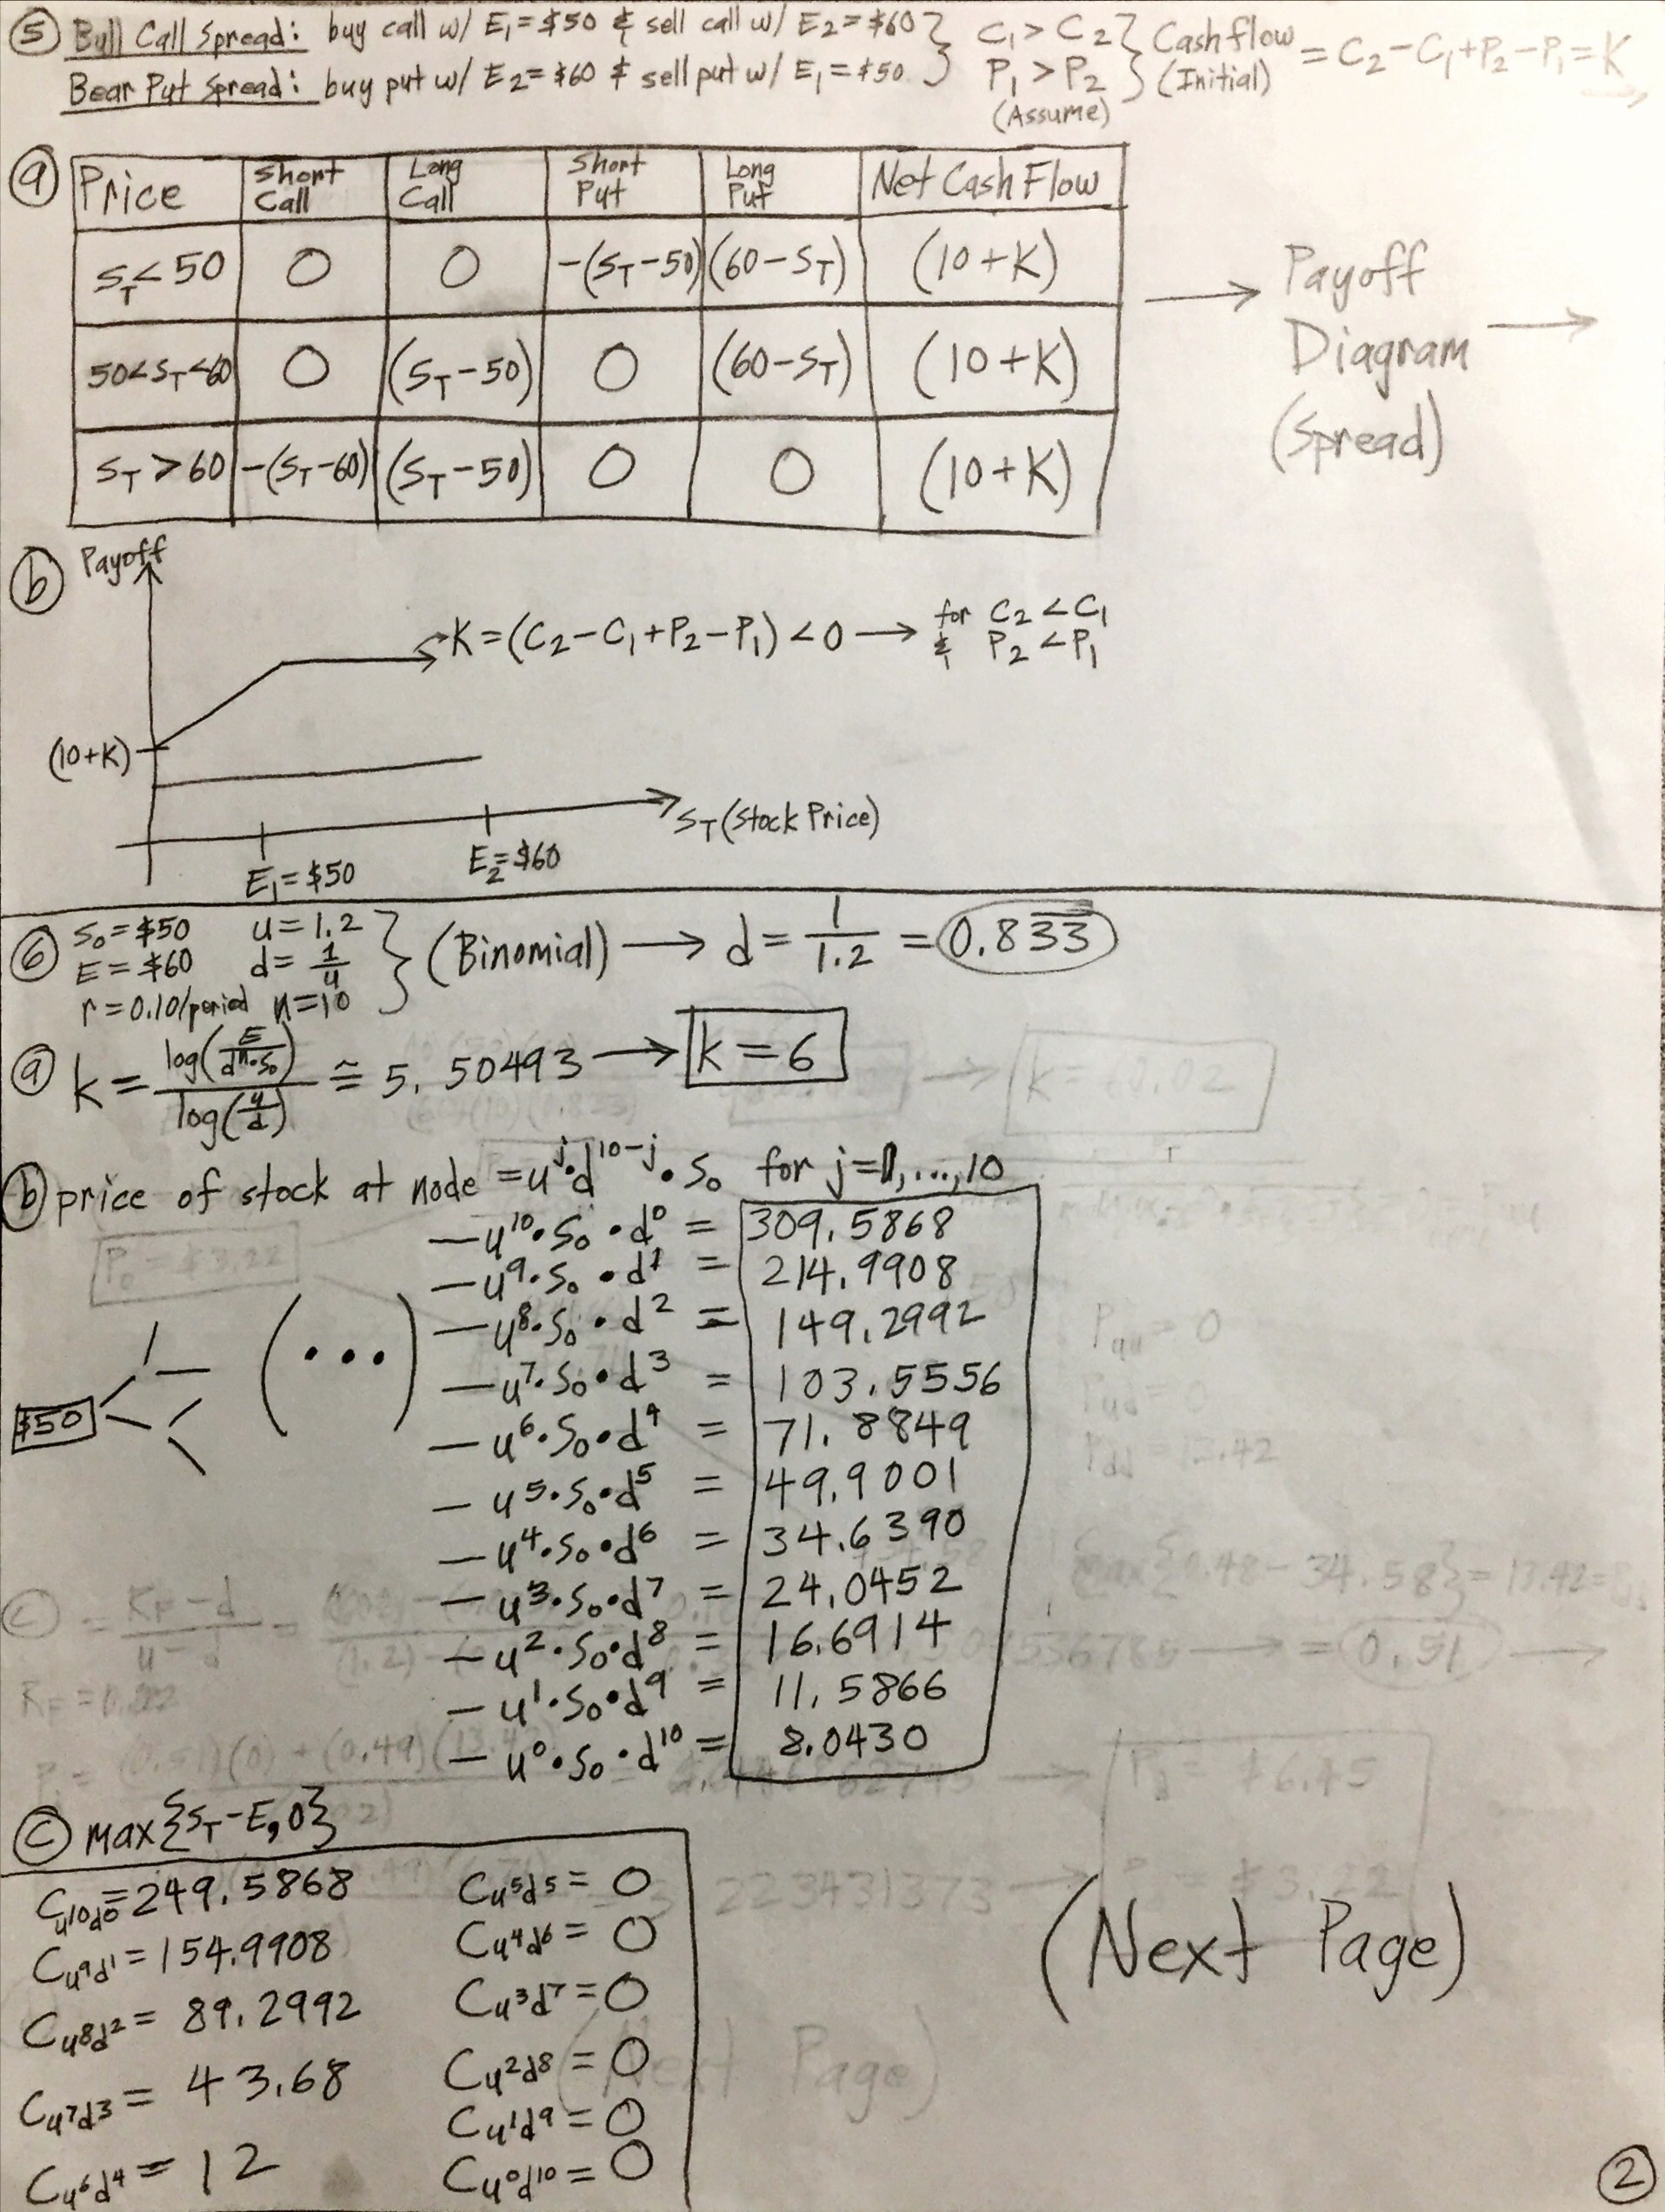 ⑤ Bull Call Spread: buy call w/ E₁=$50 & sell call w/ E₂=$60 } C₁>C₂ } Cashflow = C₂-C₁+P₂-P₁=K
Bear Put Spread: buy put w/ E₂=$60 & sell put w/ E₁=$50 } P₁>P₂ } (Initial)
(Assume)
ⓐ Price | Short Call | Long Call | Short Put | Long Put | Net Cash Flow
S_T<50 | 0 | 0 | -(S_T-50) | (60-S_T) | (10+K)
50<S_T<60 | 0 | (S_T-50) | 0 | (60-S_T) | (10+K)
S_T>60 | -(S_T-60) | (S_T-50) | 0 | 0 | (10+K)
→ Payoff
Diagram →
(Spread)
ⓑ Payoff
K=(C₂-C₁+P₂-P₁)<0 → for C₂<C₁
& P₂<P₁
(10+K)
S_T (Stock Price)
E₁=$50
E₂=$60
⑥ S₀=$50 u=1.2
E=$60 d=1/u } (Binomial) → d = 1/1.2 = 0.833
r=0.10/period n=10
ⓐ k = log(E/dⁿ·S₀)/log(u/d) ≅ 5.50493 → k=6
ⓑ price of stock at node = u^j·d^10-j·S₀ for j=0,...,10
-u¹⁰·S₀·d⁰ = 309.5868
-u⁹·S₀·d¹ = 214.9908
-u⁸·S₀·d² = 149.2992
-u⁷·S₀·d³ = 103.5556
-u⁶·S₀·d⁴ = 71.8849
-u⁵·S₀·d⁵ = 49.9001
-u⁴·S₀·d⁶ = 34.6390
-u³·S₀·d⁷ = 24.0452
-u²·S₀·d⁸ = 16.6914
-u¹·S₀·d⁹ = 11.5866
-u⁰·S₀·d¹⁰ = 8.0430
$50
(...)
ⓒ max{S_T-E,0}
C_u¹⁰d⁰=249.5868 C_u⁵d⁵=0
C_u⁹d¹=154.9908 C_u⁴d⁶=0
C_u⁸d²=89.2992 C_u³d⁷=0
C_u⁷d³=43.68 C_u²d⁸=0
C_u¹d⁹=0
C_u⁶d⁴=12 C_u⁰d¹⁰=0
(Next Page)
②